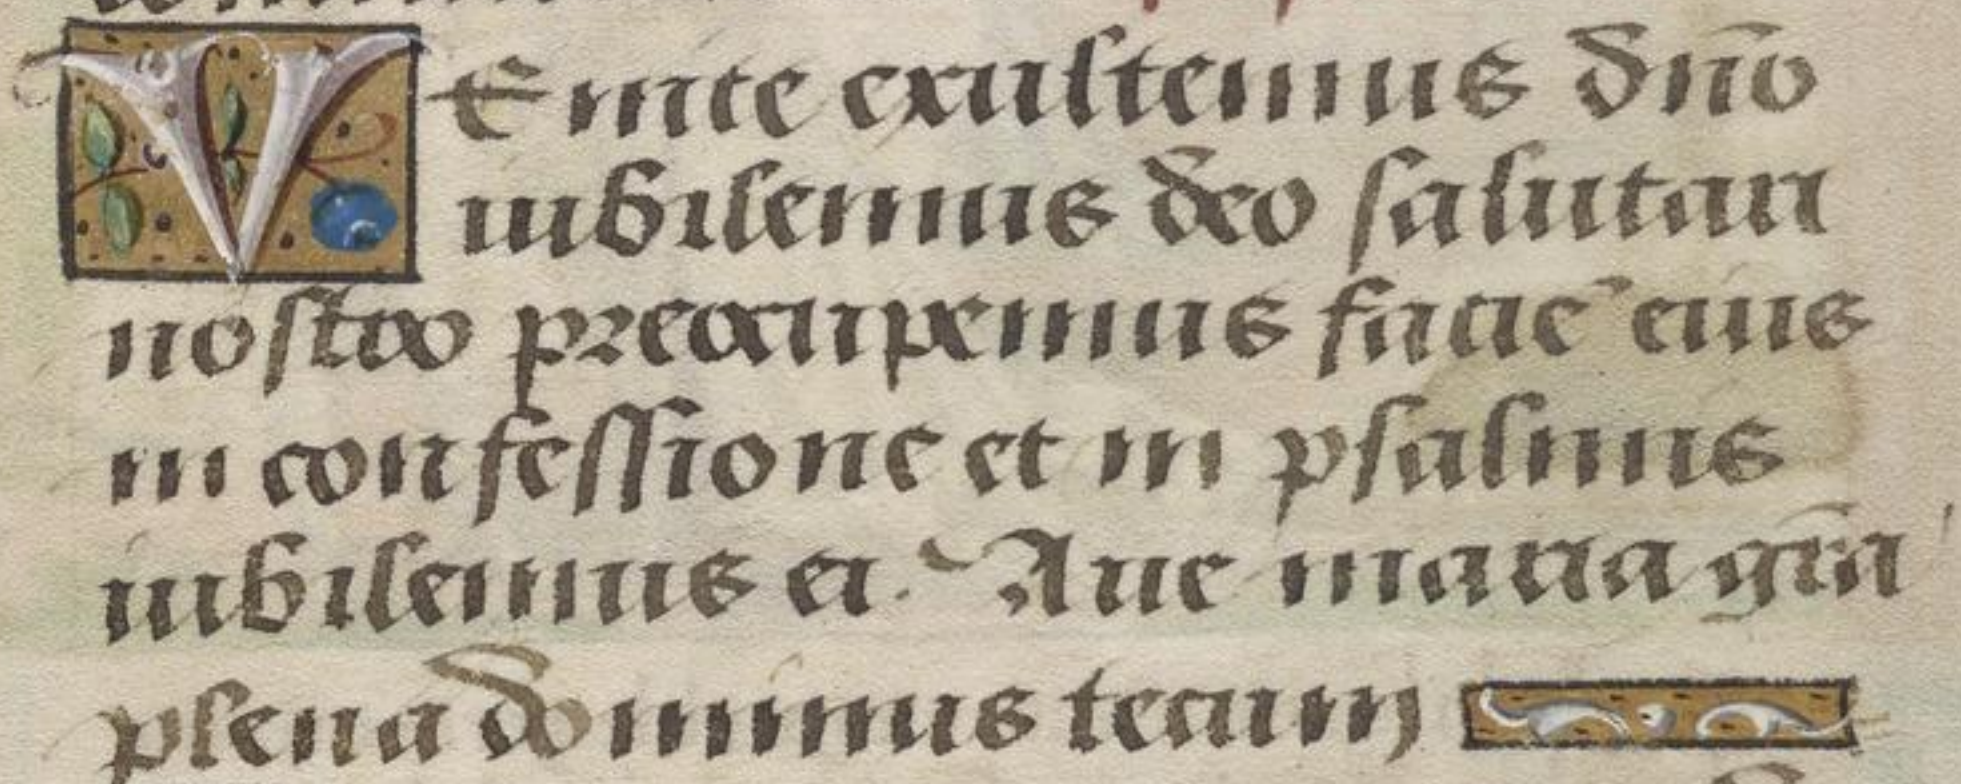 VEnite exultemus dño
iubilemus deo salutari
nostro preocupemus facie͂ eius
in confessione et in psalmis
iubilemus ei. Aue maria gr̃a
plena dominus tecum